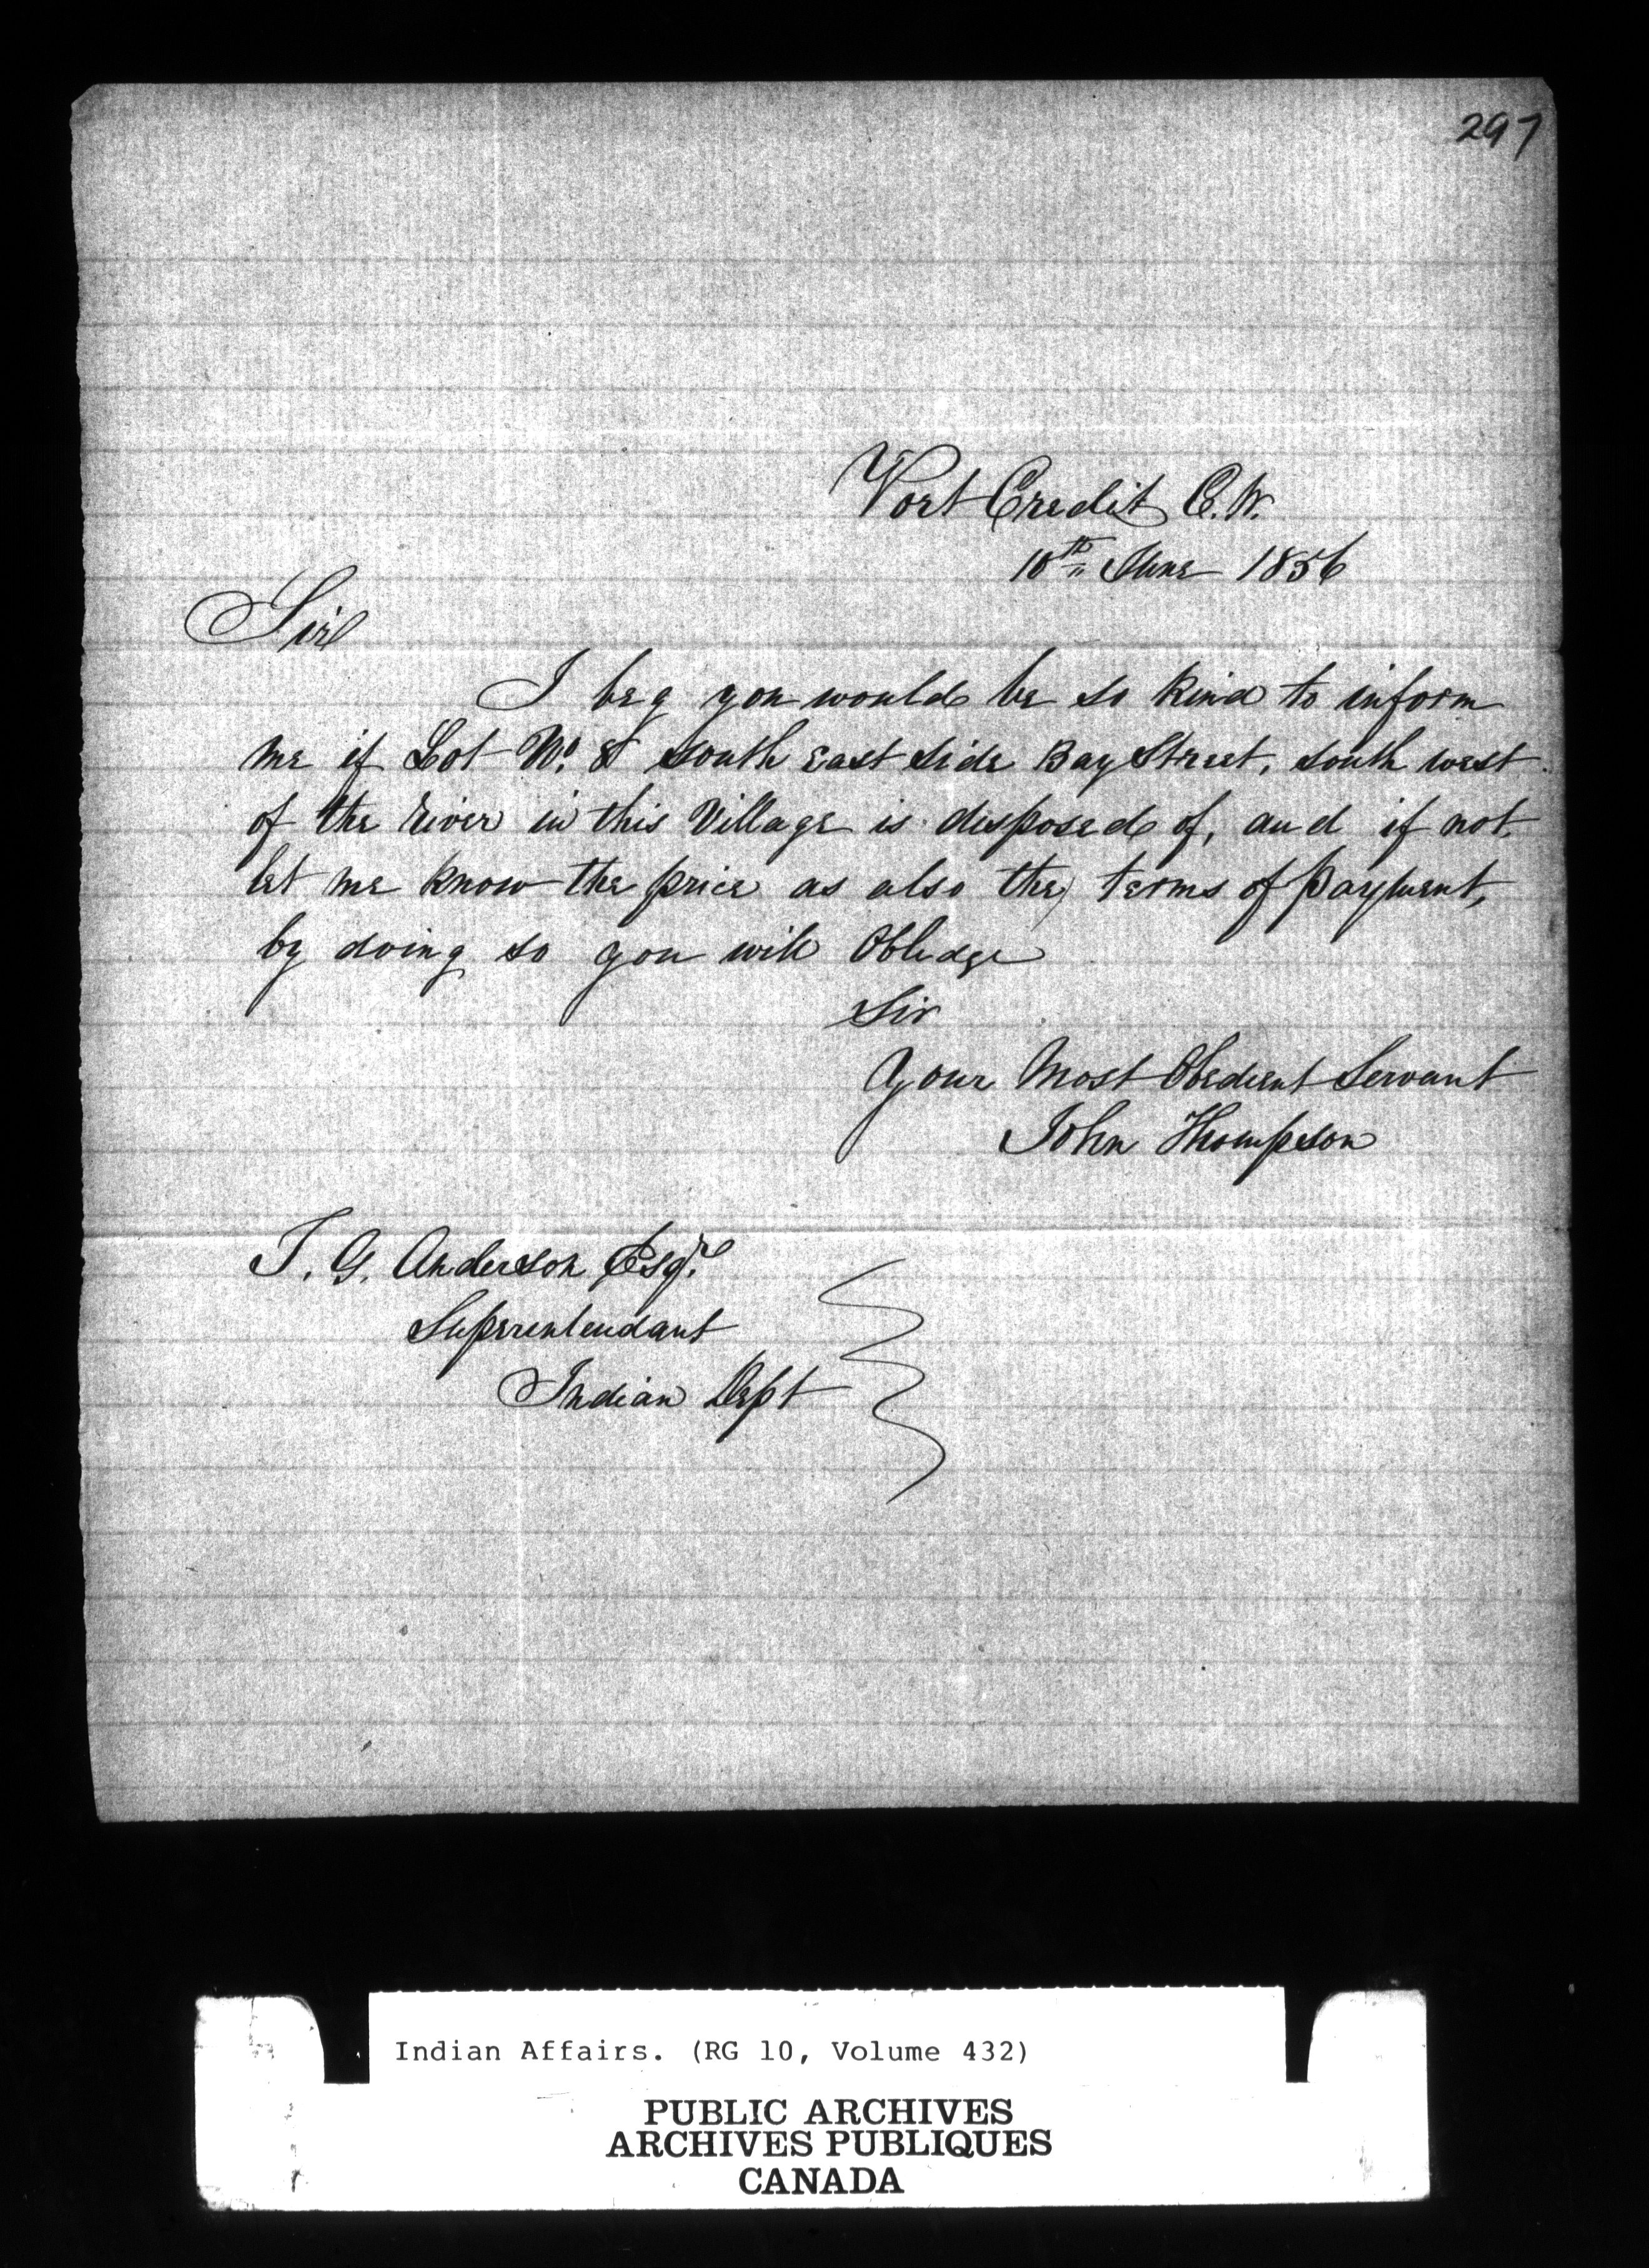 297
Port Credit C.W.
10th June 1856
Sir
I beg you would be so kind to inform
me if Lot No. 8 south East side Bay Street, south west
of the river in this Village is disposed of, and if not,
let me know the price as also the terms of payment,
by doing so you will Obledge
Sir
Your Most Obedient Servant
John Thompson
T. G. Anderson Esqre
Superentendant
Indian Dept
Indian Affairs. (RG 10, Volume 432)
PUBLIC ARCHIVES
ARCHIVES PUBLIQUES
CANADA